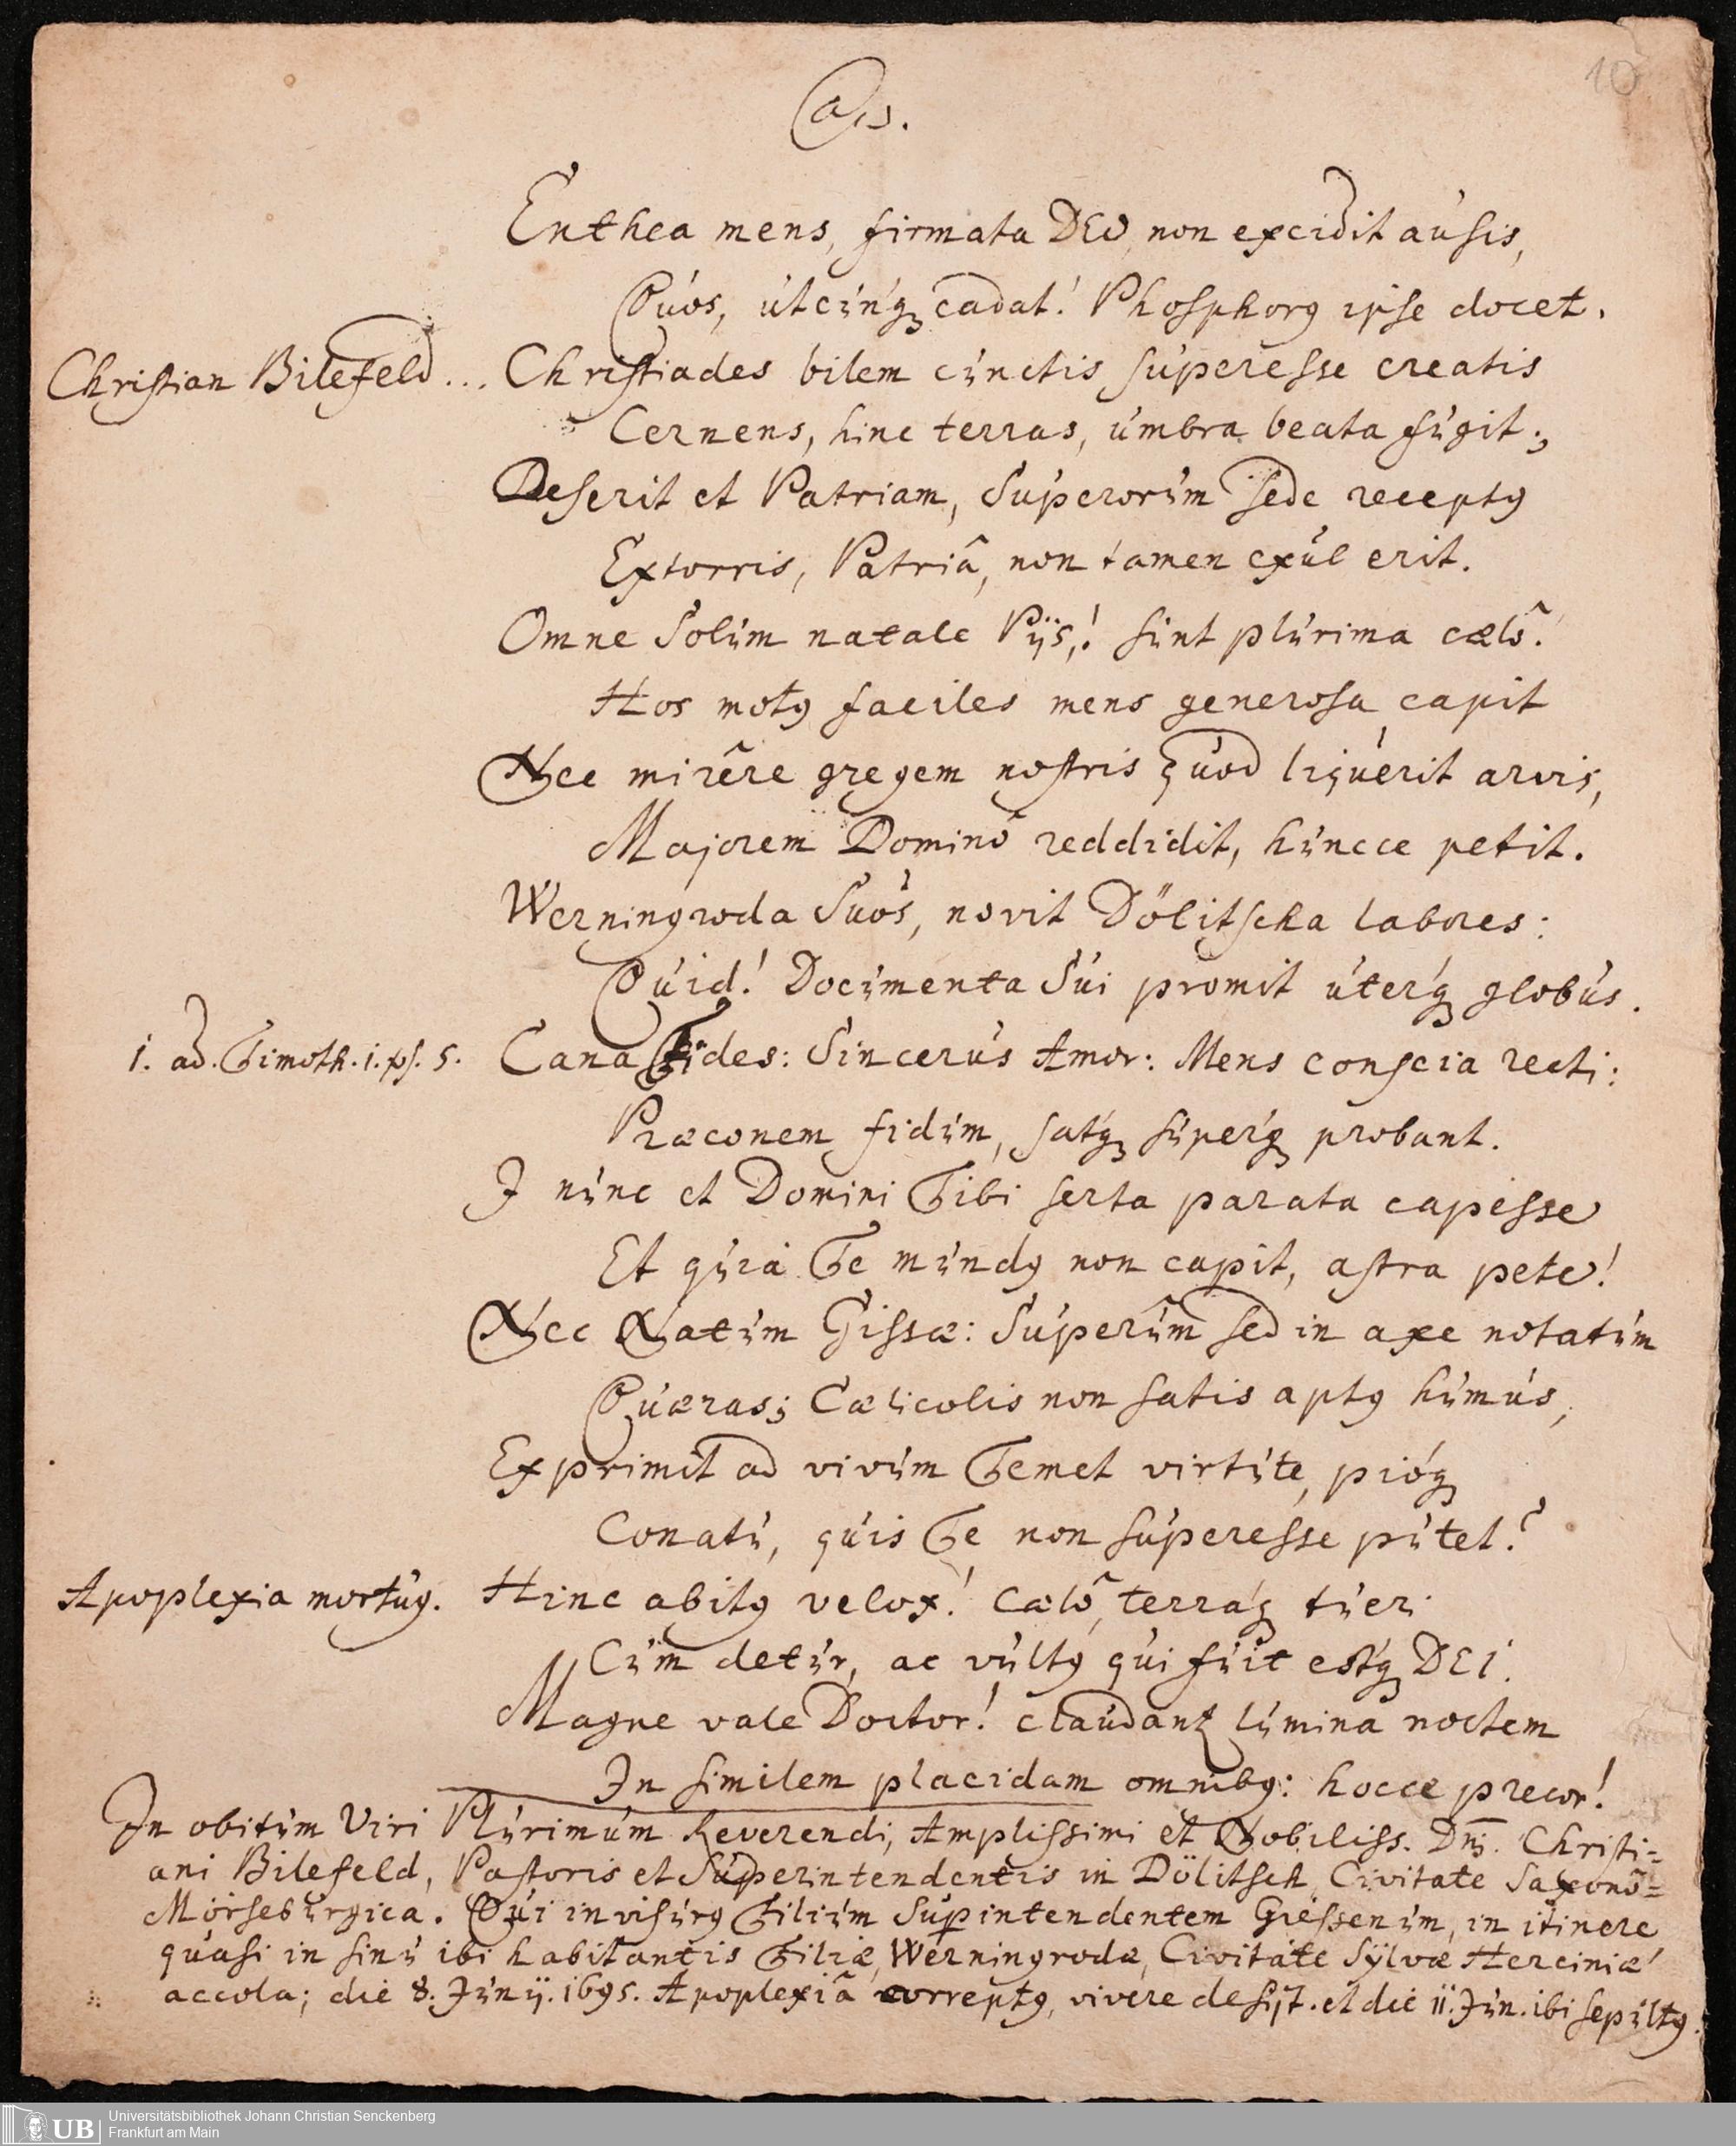 10
Enthea mens, firmata DEO, non excidit ausis,
Quos, utcunq; cadat! Phosphorꝯ ipse docet.
Christian Bilefeld... Christiades bilem cunctis superesse creatis
Cernens, hinc terras, umbra beata fugit;
Deserit et Patriam, Superorum sede receptꝯ
Extorris, Patriâ, non tamen exul erit.
Omne Solum natale Pijs,! sint plurima cælô!
Hos motꝯ faciles mens generosa capit
Nec mirêre gregem nostris quod liquerit arvis,
Majorem Dominô reddidit, huncce petit.
Werningroda Suos, novit Dölitscha labores:
Quid! Documenta Sui promit uterq; globus.
1. ad. Timoth. 1. ps. 5. Cana Fides: Sincerus Amor: Mens conscia recti:
Præconem fidum, satq; superq; probant.
I nunc et Domini Tibi serta parata capesse
Et quia Te mundꝯ non capit, astra pete!
Nec Natum Gissæ: Superûm sed in axe notatum
Quæras; Cælicolis non satis aptꝯ humus,
Exprimit ad vivum Temet virtute, pióq;
Conatu, quis Te non superesse putet?
Apoplexia mortuꝯ. Hinc abitꝯ velox! Cælô, terráq; tueri
Cum detur, ac vultꝯ qui fuit estq; DEI.
Magne vale Doctor! claudant lumina noctem
In similem placidam omnibꝯ: hocce precor!
In obitum Viri Plurimum Reverendi, Amplissimi et Nobiliss. Dn̄i. Christi=
ani Bilefeld, Pastoris et Superintendentis in Dölitsch, Civitate Saxonô=
Mörseburgica. Qui invisurꝯ Filium Supintendentem Giessenum, in itinere
quasi in sinu ibi habitantis Filiæ, Werningrodæ, Civitate Sylvæ Herciniæ
accola; die 8. Junij. 1695. Apoplexiâ correptꝯ, vivere desijt. et die 11. Jun. ibi sepultꝯ.
UB
Universitätsbibliothek Johann Christian Senckenberg
Frankfurt am Main